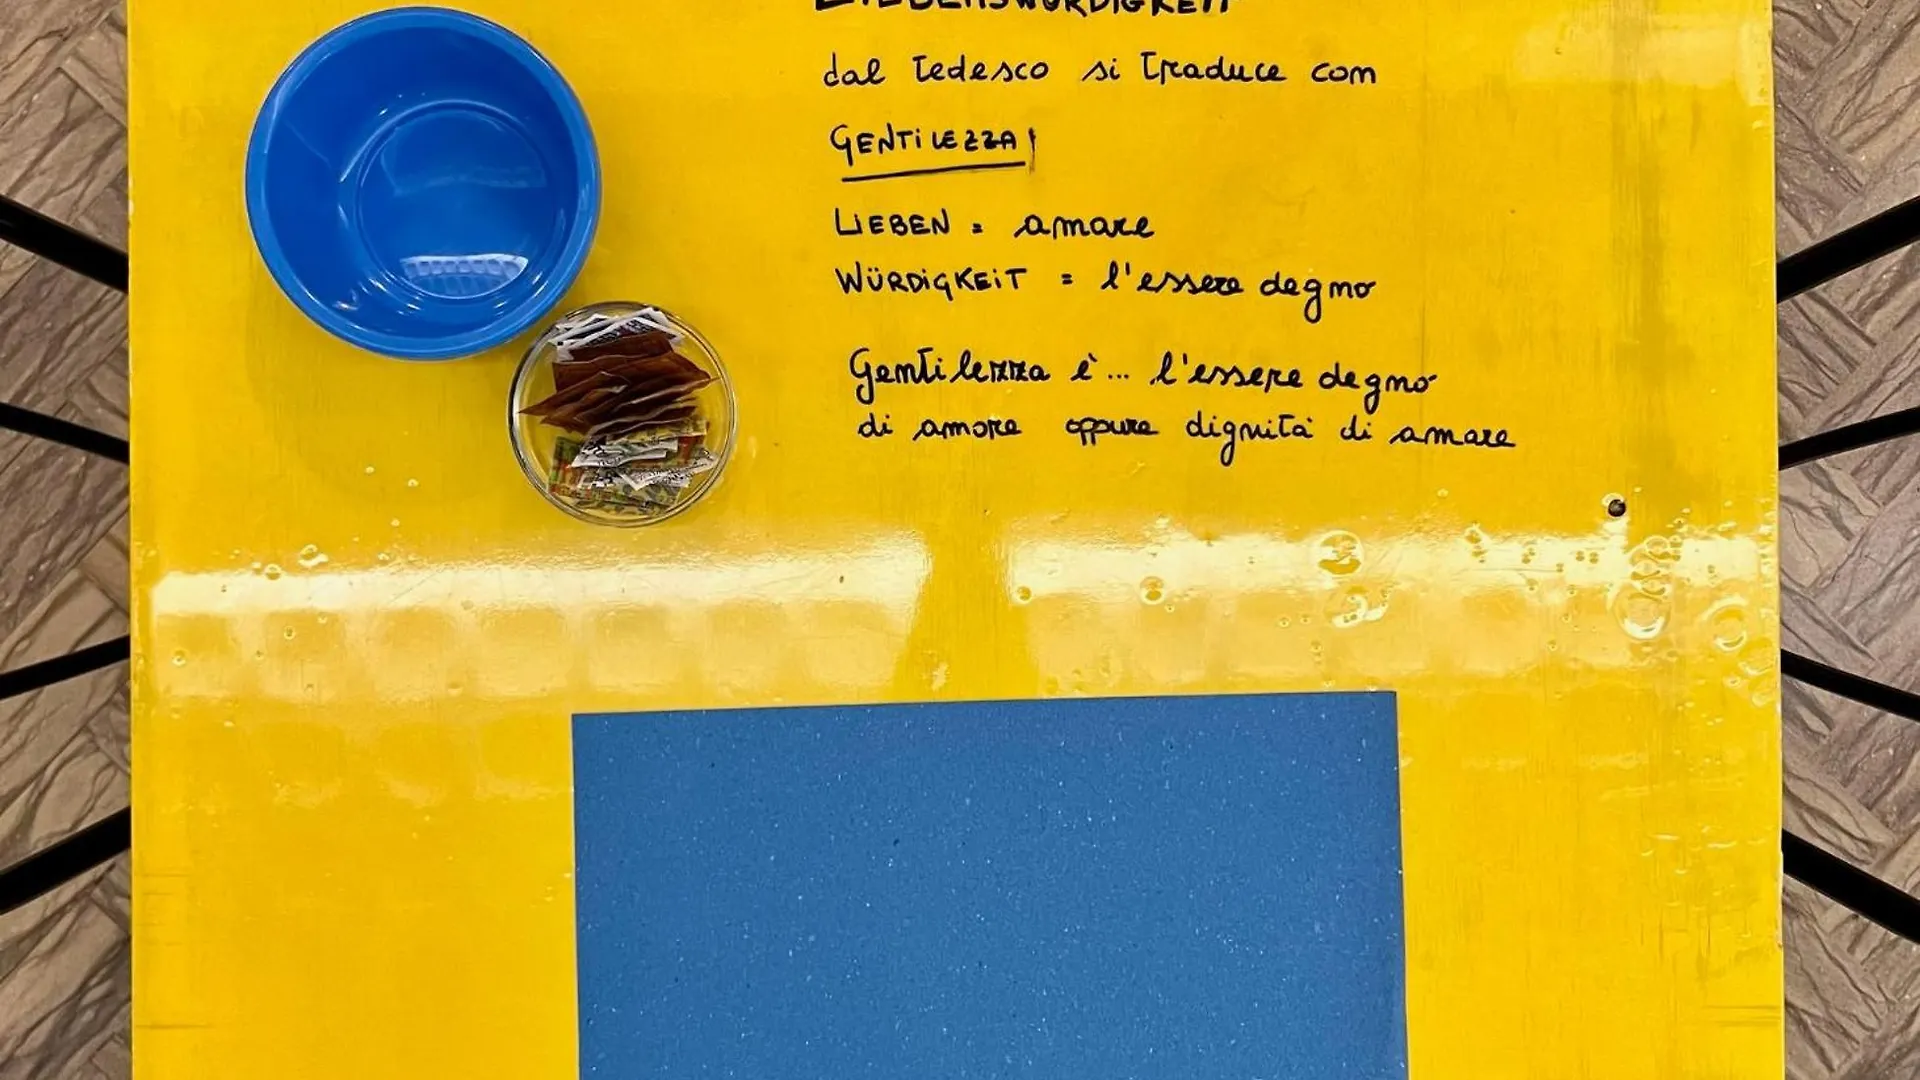 LIEBENSWÜRDIGKEIT
dal tedesco si traduce com
GENTILEZZA!
LIEBEN = amare
WÜRDIGKEIT = l'essere degno
Gentilezza è... l'essere degno
di amore oppure dignità di amare